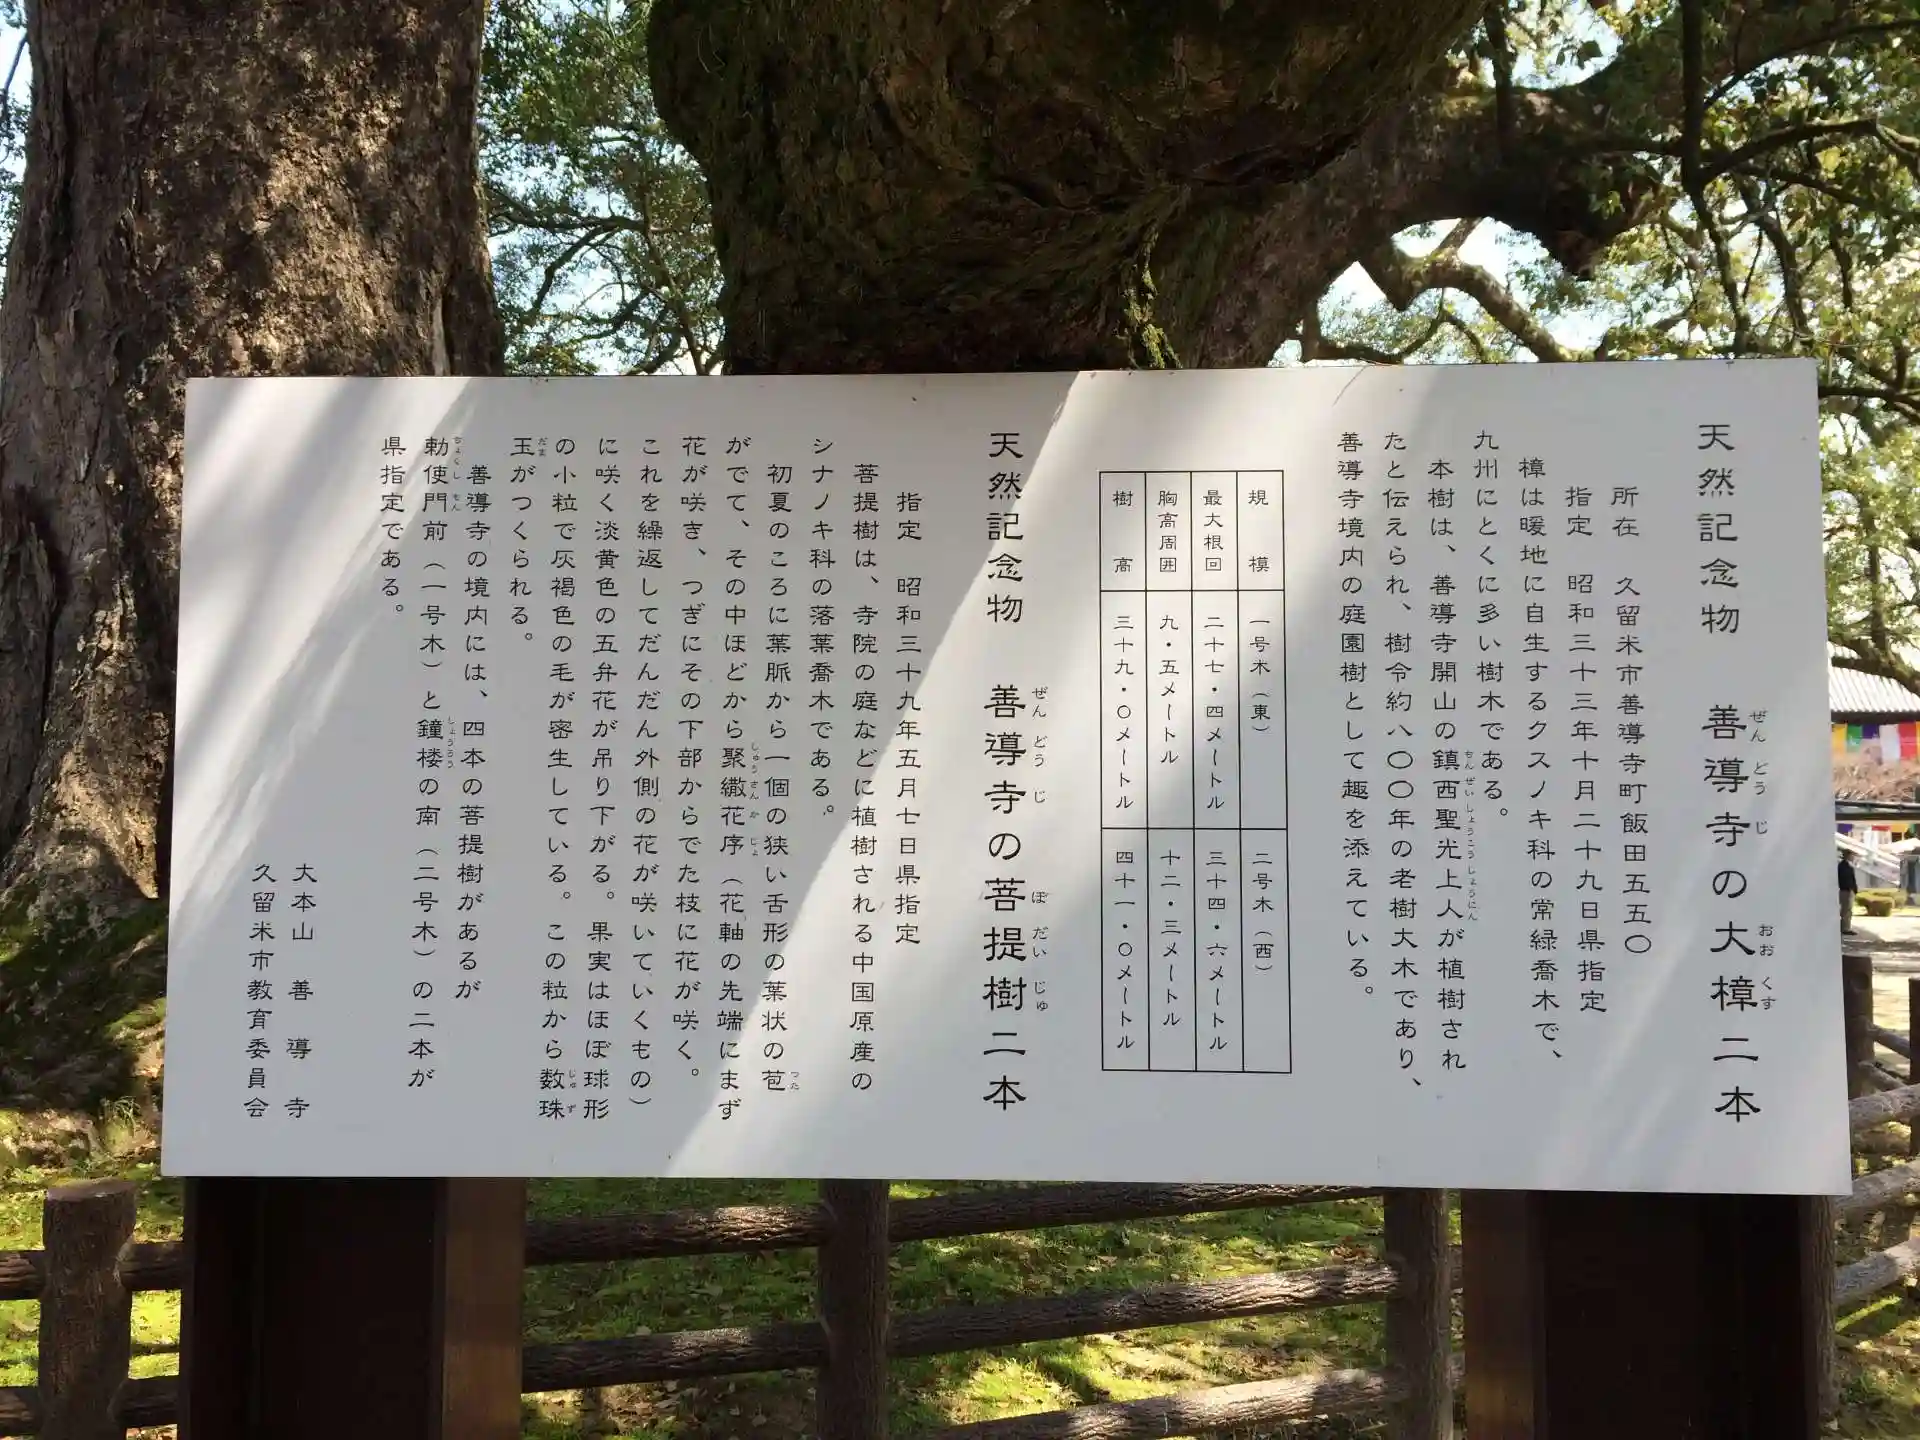 天然記念物　善導寺の大樟二本
ぜんどうじ　おおくす
所在　久留米市善導寺町飯田五五〇
指定　昭和三十三年十月二十九日県指定
樟は暖地に自生するクスノキ科の常緑喬木で、
九州にとくに多い樹木である。
本樹は、善導寺開山の鎮西聖光上人が植樹され
ちんぜいしょうこうしょうにん
たと伝えられ、樹令約八〇〇年の老樹大木であり、
善導寺境内の庭園樹として趣を添えている。
規模　一号木（東）　二号木（西）
最大根回　二十七・四メートル　三十四・六メートル
胸高周囲　九・五メートル　十二・三メートル
樹高　三十九・〇メートル　四十一・〇メートル
天然記念物　善導寺の菩提樹二本
ぜんどうじ　ぼだいじゅ
指定　昭和三十九年五月七日県指定
菩提樹は、寺院の庭などに植樹される中国原産の
シナノキ科の落葉喬木である。
初夏のころに葉脈から一個の狭い舌形の葉状の苞
つた
がでて、その中ほどから聚繖花序（花軸の先端にまず
しゅうさんかじょ
花が咲き、つぎにその下部からでた枝に花が咲く。
これを繰返してだんだん外側の花が咲いていくもの）
に咲く淡黄色の五弁花が吊り下がる。果実はほぼ球形
の小粒で灰褐色の毛が密生している。この粒から数珠
じゅず
玉がつくられる。
だま
善導寺の境内には、四本の菩提樹があるが
勅使門前（一号木）と鐘楼の南（二号木）の二本が
ちょくしもん　しょうろう
県指定である。
大本山　善導寺
久留米市教育委員会